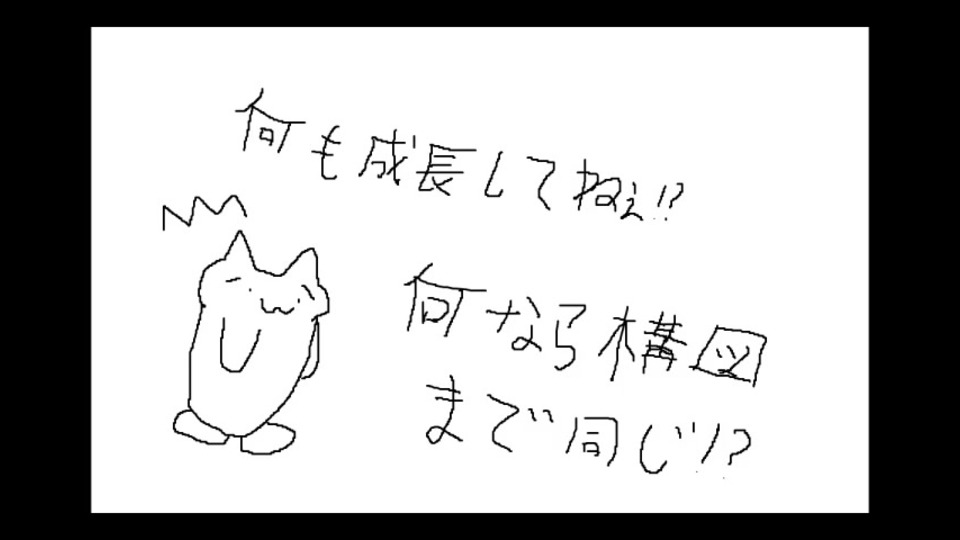 何も成長してねぇ!?
何なら構図
まで同じ!?